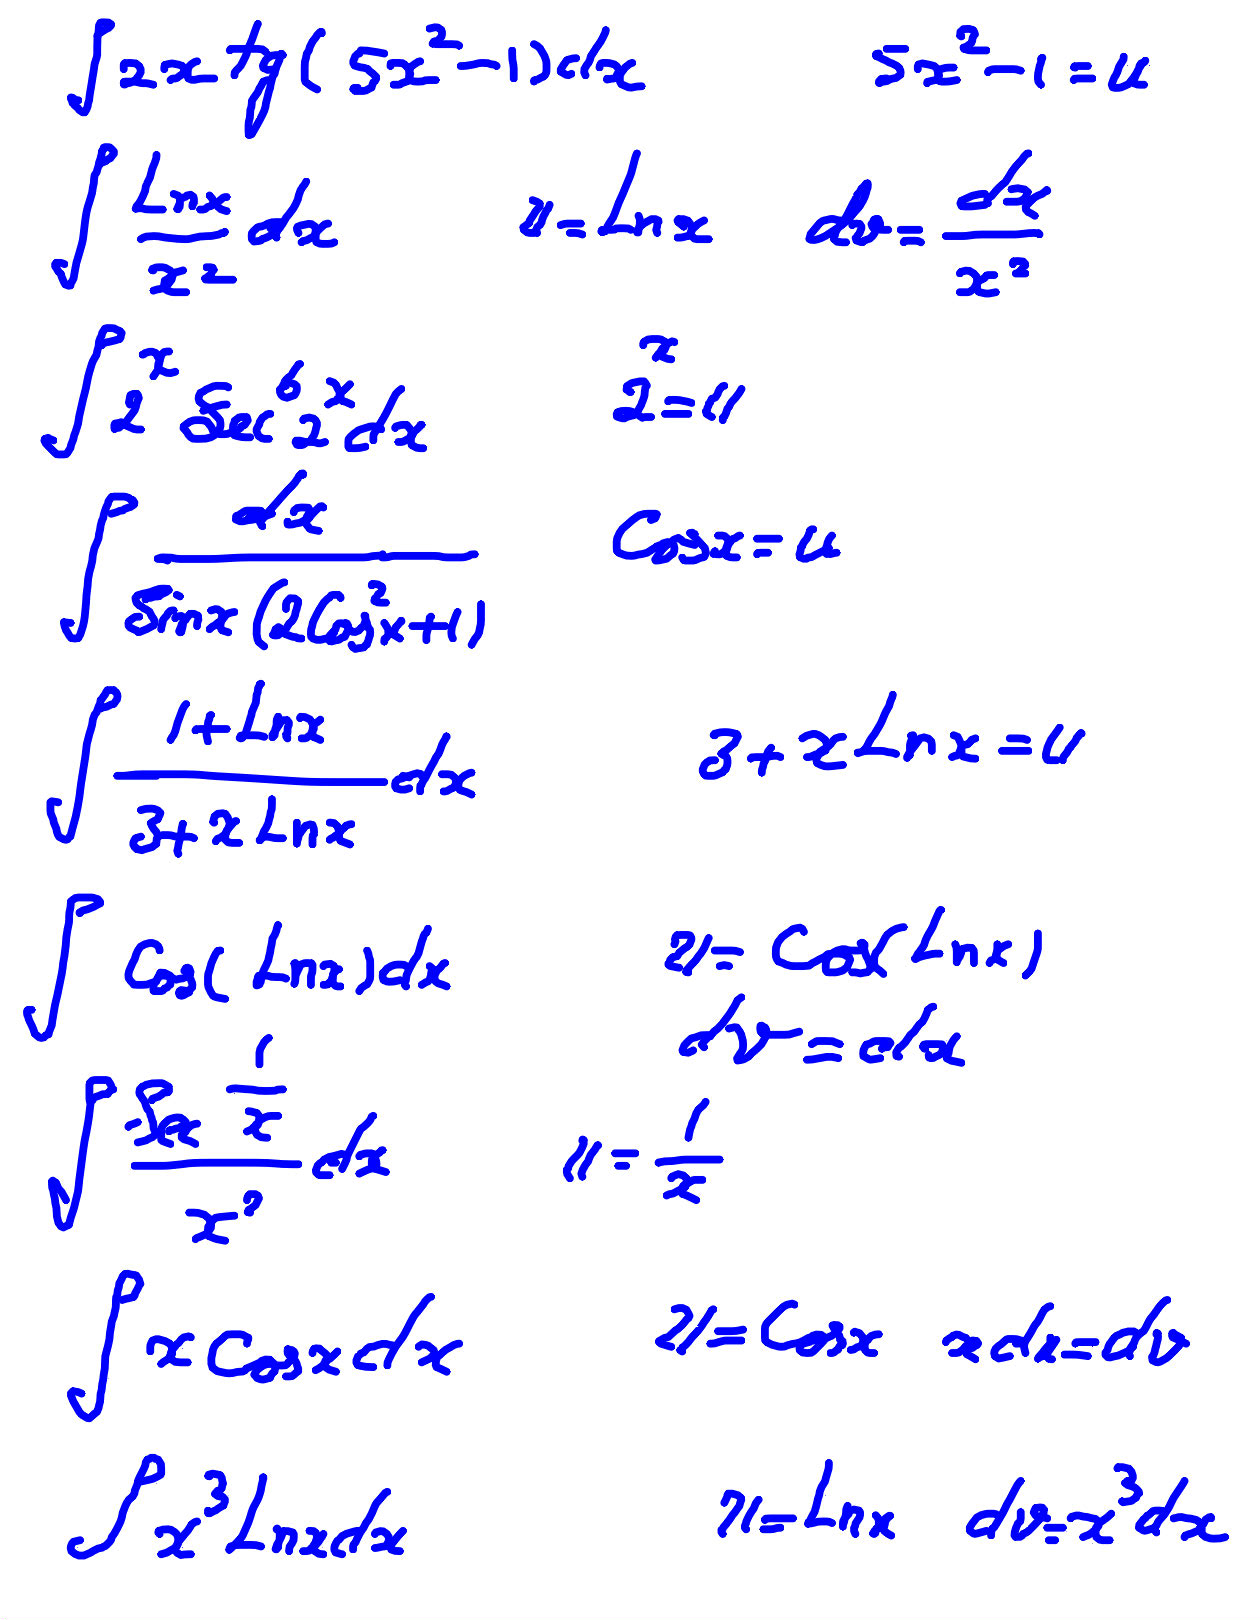 ∫ 2x tg(5x² − 1) dx    5x² − 1 = u
∫ Lnx/x² dx    u = Lnx    dv = dx/x²
∫ 2ˣ Sec⁶ 2ˣ dx    2ˣ = u
∫ dx/(Sinx (2Cos²x + 1))    Cosx = u
∫ (1 + Lnx)/(3 + x Lnx) dx    3 + x Lnx = u
∫ Cos(Lnx) dx    u = Cos(Lnx)
dv = dx
∫ Sec 1/x / x² dx    u = 1/x
∫ x Cosx dx    u = Cosx    x dx = dv
∫ x³ Lnx dx    u = Lnx    dv = x³ dx